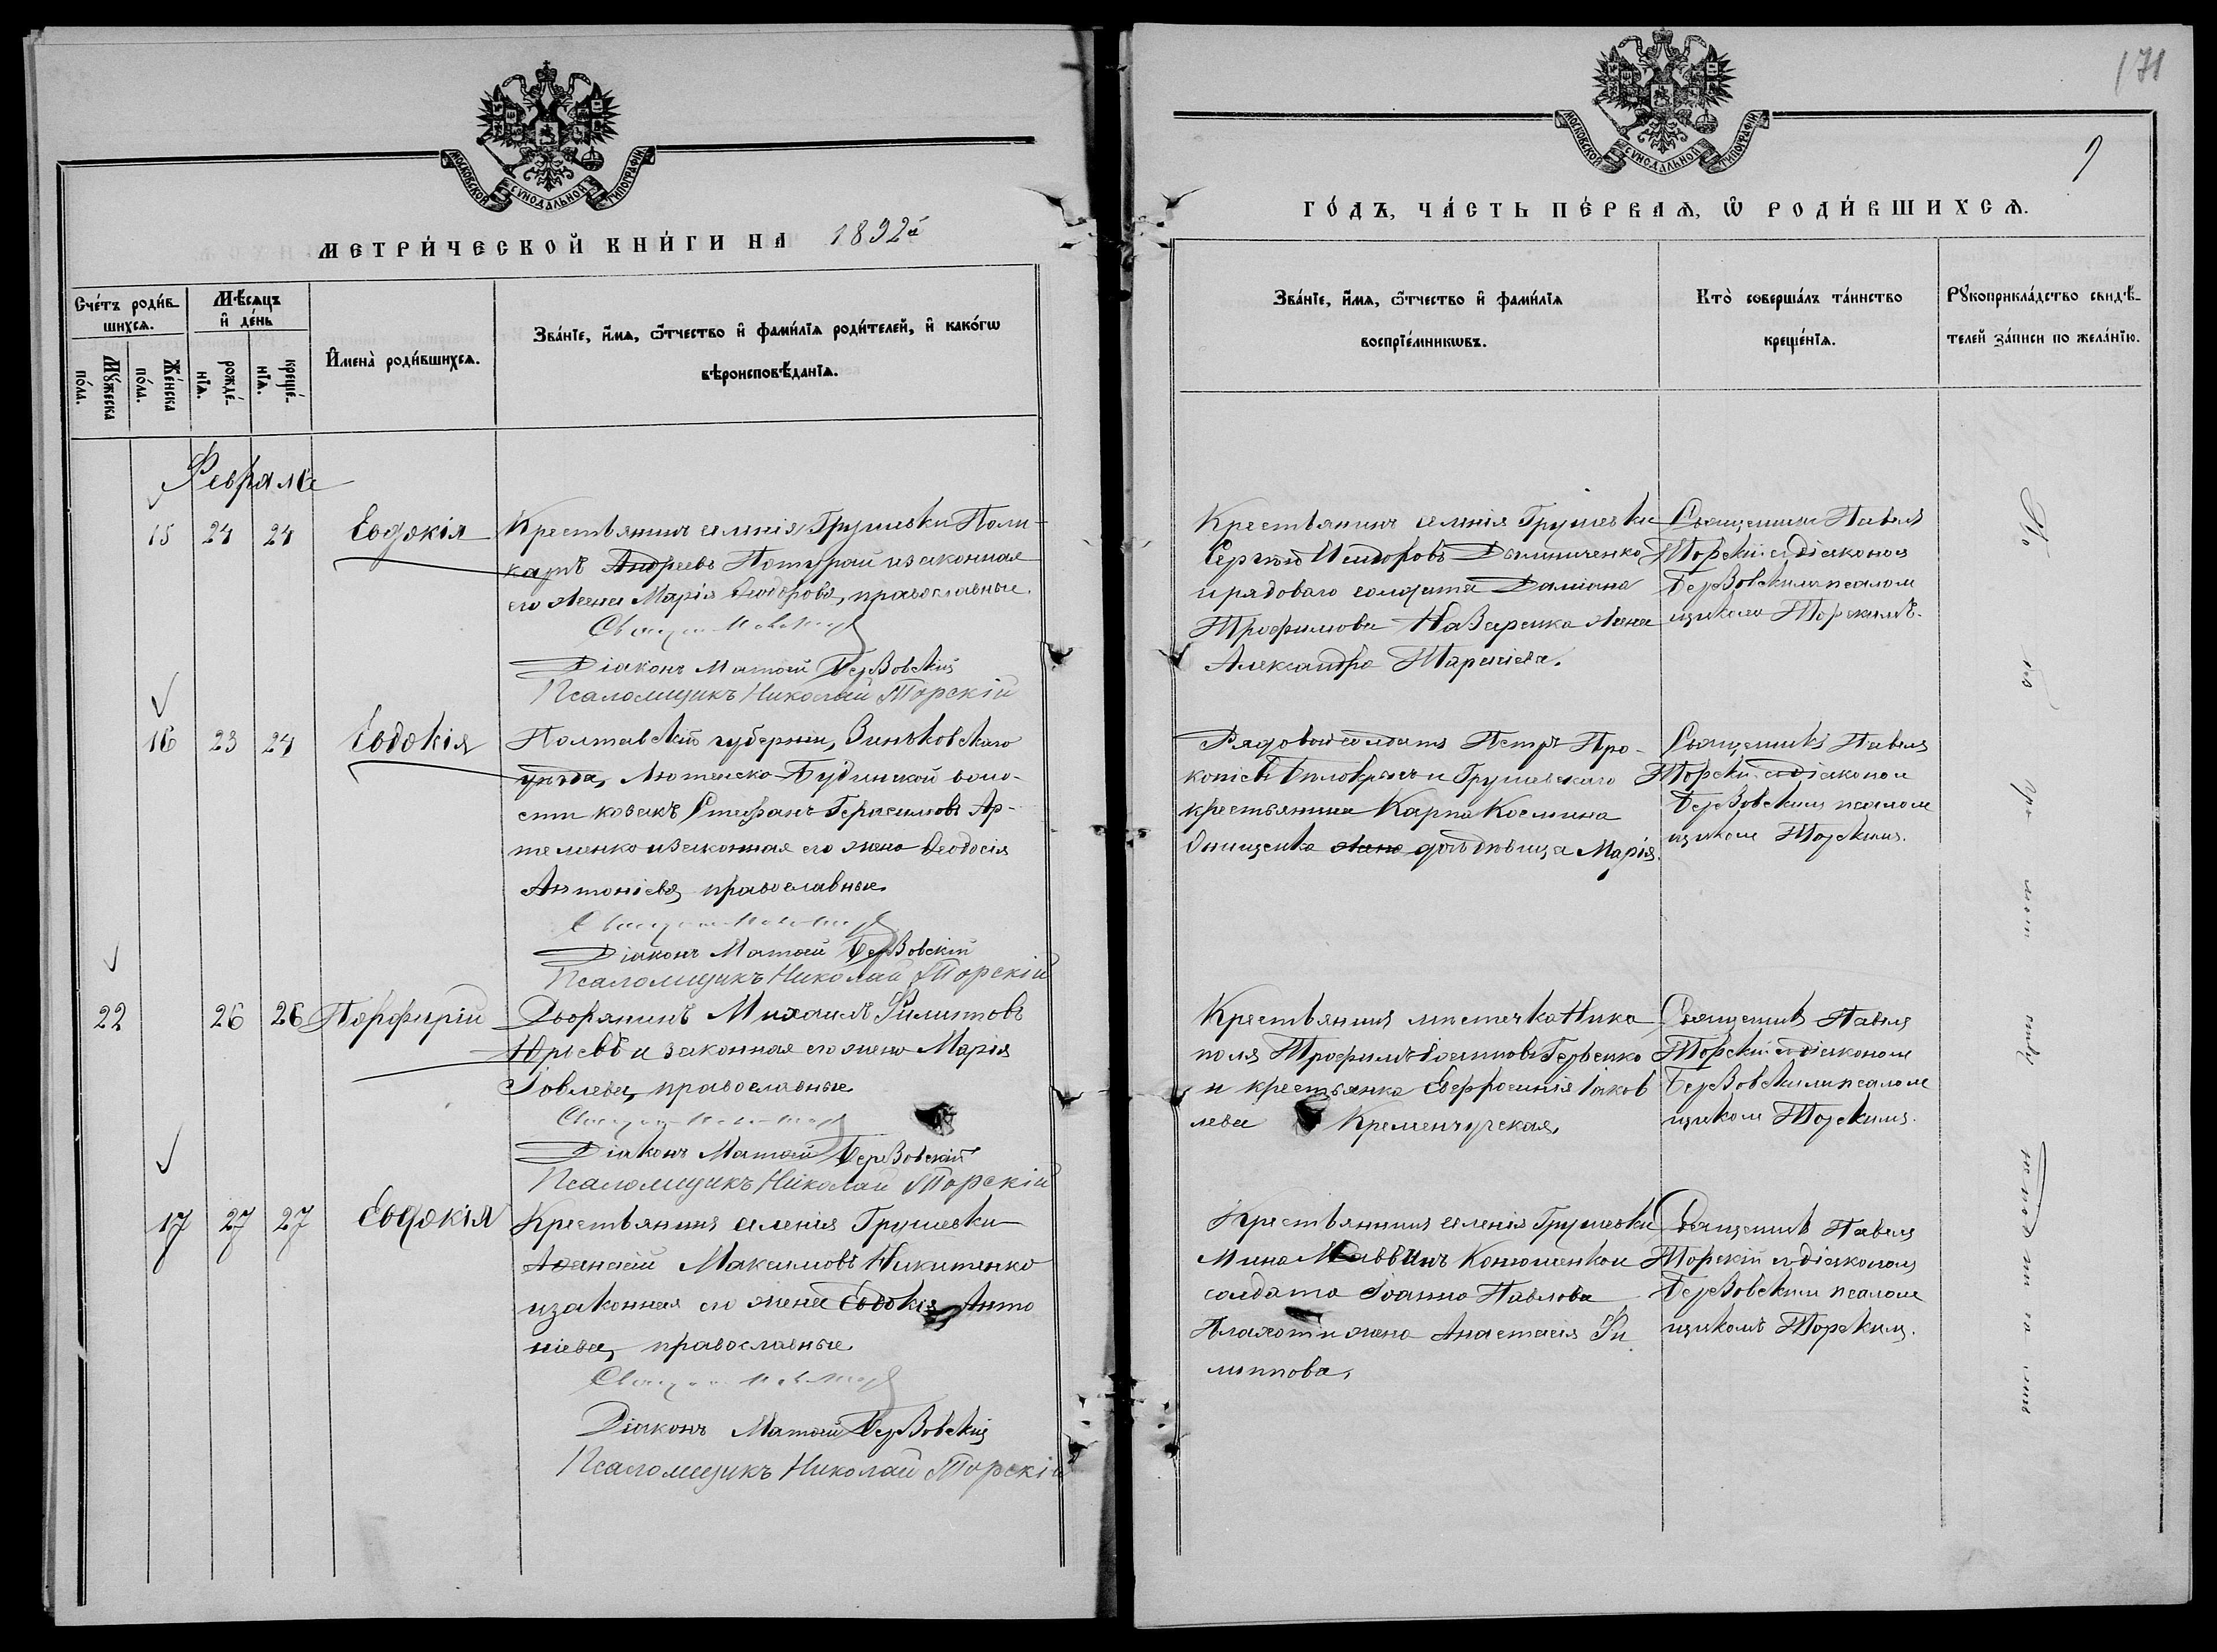 МОСКОВСКОЙ СУНОДАЛЬНОЙ ТИПОГРАФІИ
МЕТРИ́ЧЕСКОЙ КНИ́ГИ НА 1892й
Сче́тъ роди́в-
шихсѧ.
Мꙋ́жеска
по́ла.
Же́нска
по́ла.
Мѣ́сяцъ
и҆ де́нь
рожде́-
нїѧ.
креще́-
нїѧ.
И҆мена̀ роди́вшихсѧ.
Зва́нїе, и҆́мѧ, ѻ҆́тчество и҆ фами́лїѧ роди́телей, и҆ како́гѡ
вѣроисповѣ́данїѧ.
Февраль
15 24 24 Евдокія
Крестьянинъ имѣнія Грушевки Поли-
карпъ Андреевъ Потурай и законная
его жена Марія Ѳеодорова, православные.
Діаконъ Матѳей Бервовскій
Псаломщикъ Николай Торскій
16 23 24 Евдокія
Полтавской губерніи, Зиньковскаго
уѣзда, Лютенско-Будищкой воло-
сти козакъ Стефанъ Герасимовъ Ар-
теменко и законная его жена Ѳеодосія
Антоніева, православные
Діаконъ Матѳей Бервовскій
Псаломщикъ Николай Торскій
22 26 26 Порфирій
Дворянинъ Михаилъ Филиповъ
Юрьевъ и законная его жена Марія
Іовлева, православные
Діаконъ Матѳей Бервовскій
Псаломщикъ Николай Торскій
17 27 27 Евдокія
Крестьянинъ имѣнія Грушевки
Аѳанасій Максимовъ Никитенко
и законная его жена Евдокія Анто
ніева, православные.
Діаконъ Матѳей Бервовскій
Псаломщикъ Николай Торскій
171
МОСКОВСКОЙ СУНОДАЛЬНОЙ ТИПОГРАФІИ
ГО́ДЪ, ЧА́СТЬ ПЕ́РВАѦ, Ѡ҆ РОДИ́ВШИХСѦ.
Зва́нїе, и҆́мѧ, ѻ҆́тчество и҆ фами́лїѧ
воспрїе́мникѡвъ.
Кто̀ соверша́лъ та́инство
креще́нїѧ.
Рꙋкоприкла́дство свидѣ́-
телей за́писи по жела́нїю.
Крестьянинъ имѣнія Грушевки
Сергѣй Исидоровъ Демниченко
и рядоваго солдата Даміана
Трофимова Назаренка жена
Александра Терентіева.
Священникъ Павелъ
Торскій съ діакономъ
Бервовскимъ и псалом
щикомъ Торскимъ.
Рядовой солдатъ Петръ Про-
копіевъ Билокрысъ и Грушевскаго
крестьянина Карпа Космина
Онищенка жена дочь дѣвица Марія.
Священникъ Павелъ
Торскій съ діакономъ
Бервовскимъ псалом
щикомъ Торскимъ.
Крестьянинъ мѣстечка Нико
поля Трофимъ Іоанновъ Гервенко
и крестьянка Евфросинія Іаков
лева Кременчугская,
Священникъ Павелъ
Торскій съ діакономъ
Бервовскимъ и псалом
щикомъ Торскимъ.
Крестьянинъ имѣнія Грушевки
Мина Саввинъ Конюшенко и
солдата Іоанна Павлова
Плахотн жена Анастасія Фи
липпова,
Священникъ Павелъ
Торскій съ діакономъ
Бервовскимъ псалом
щикомъ Торскимъ.